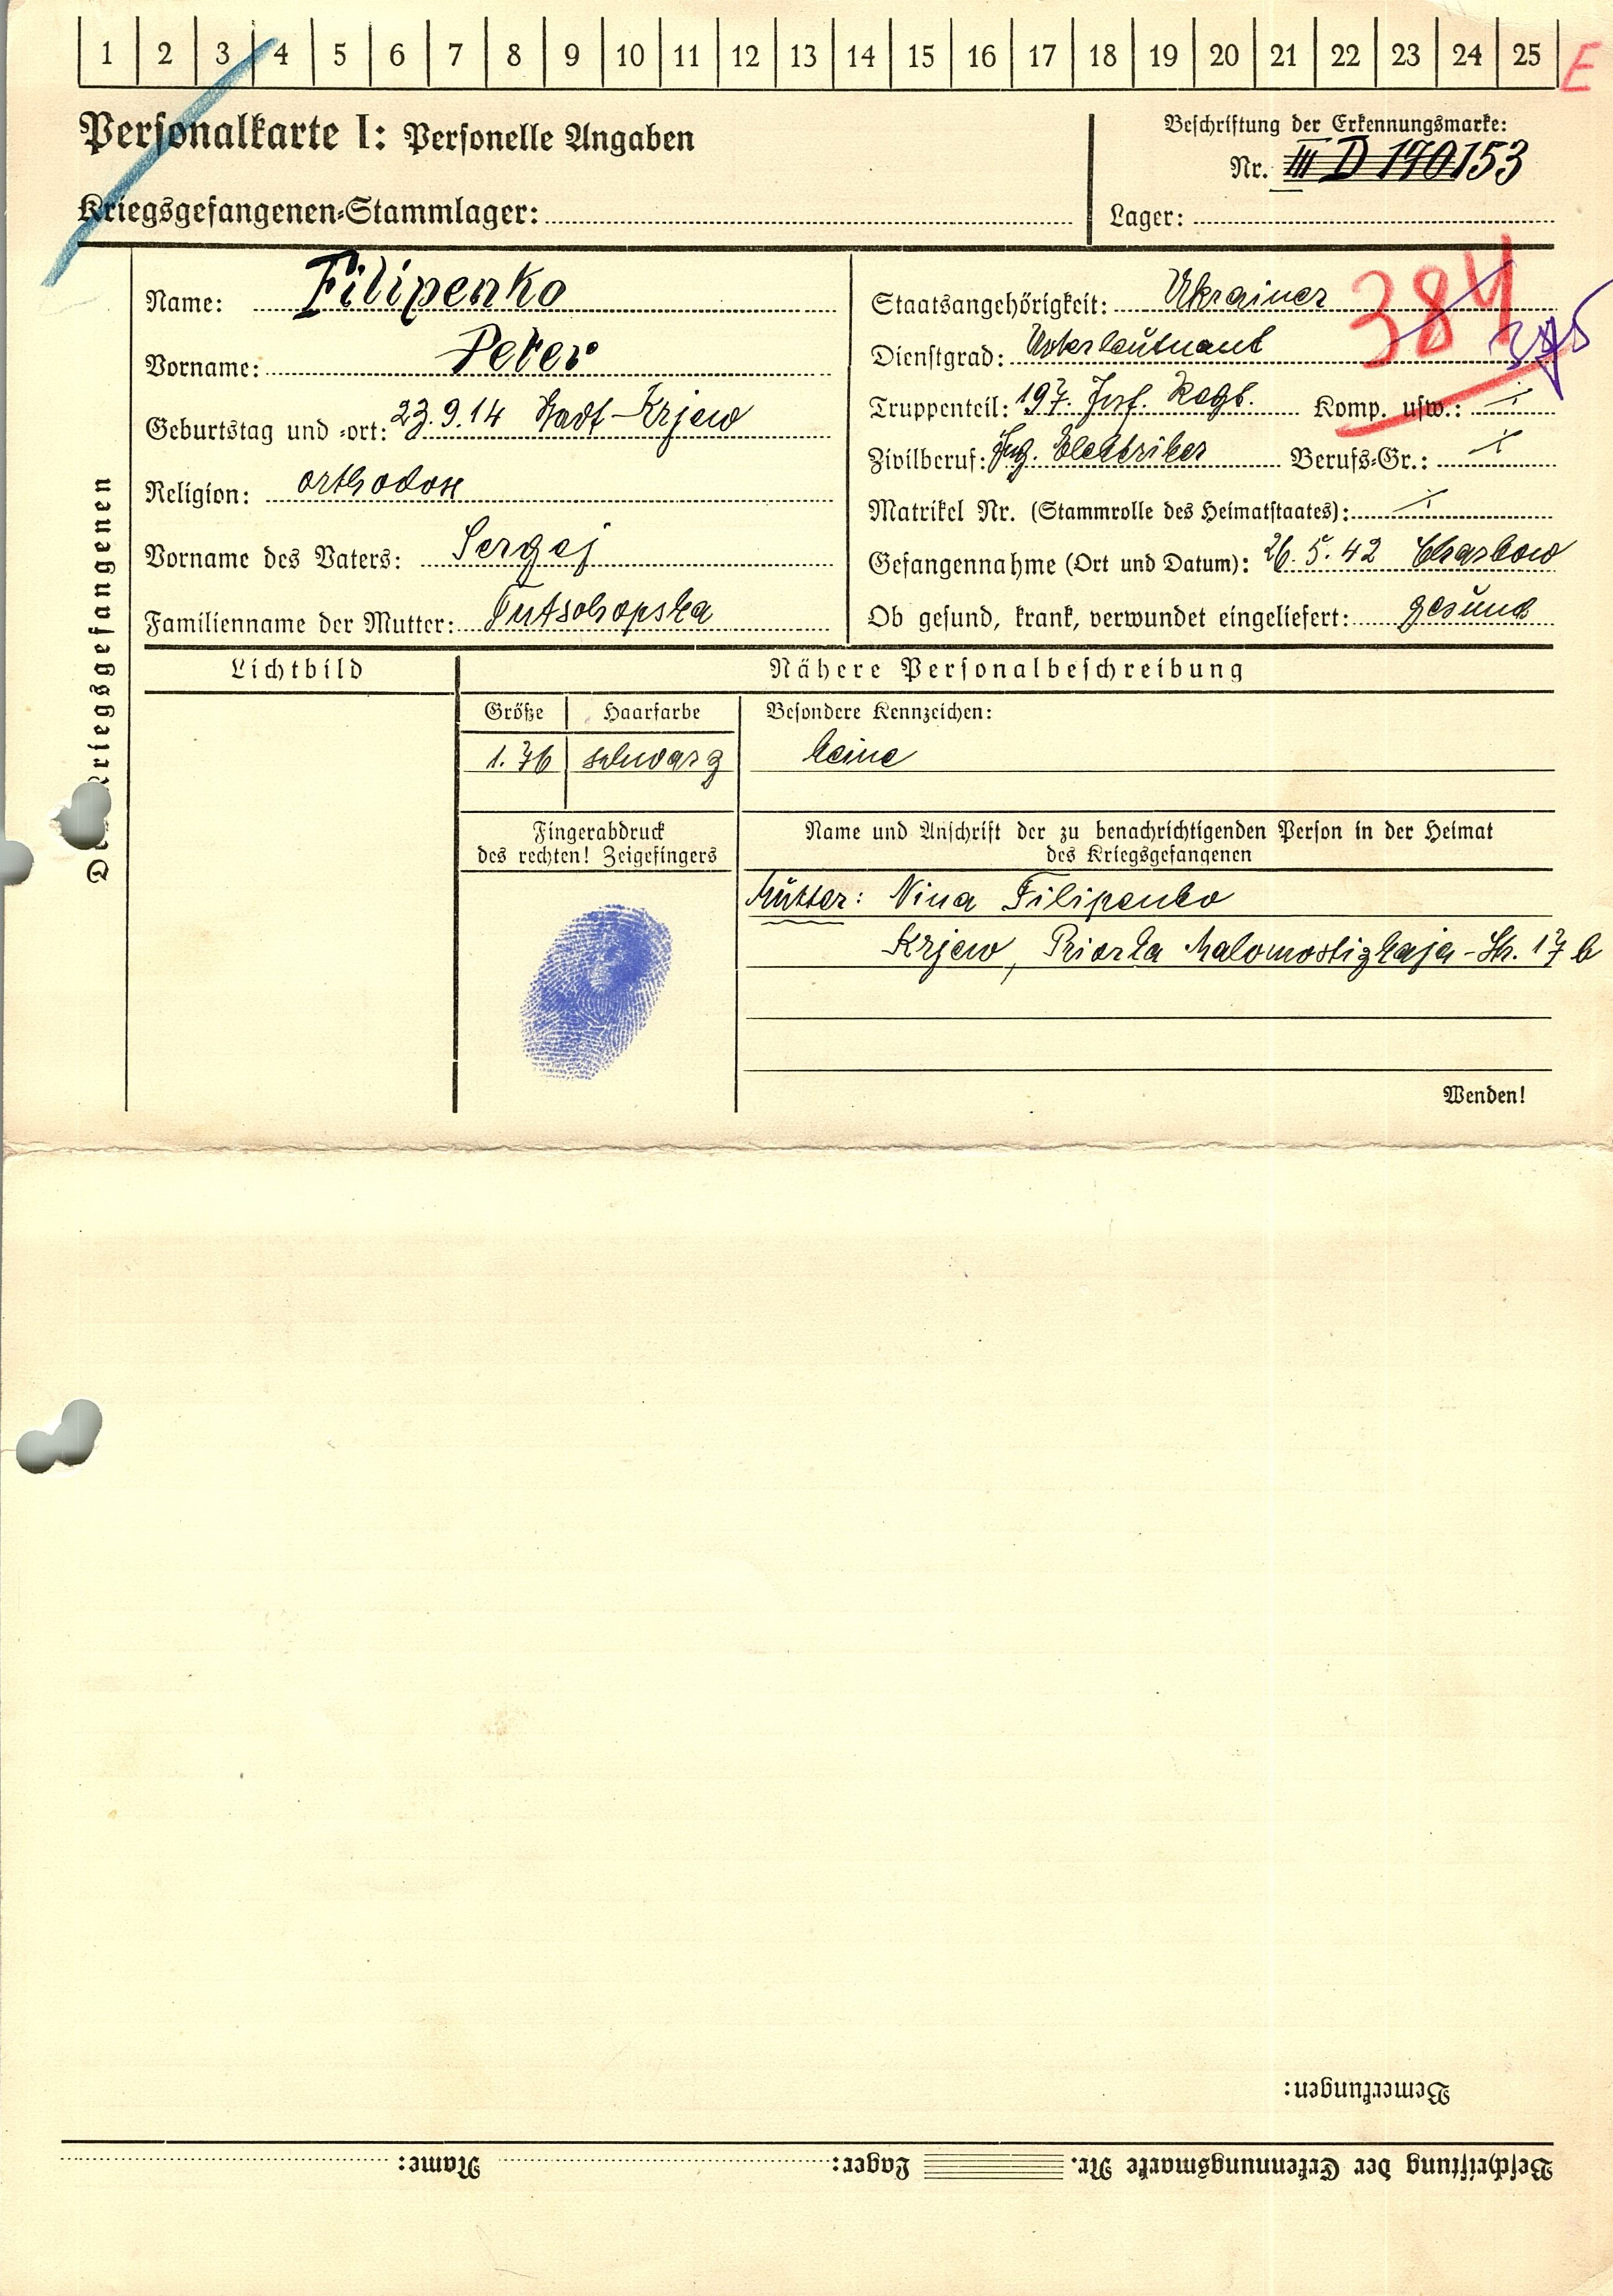 1 2 3 4 5 6 7 8 9 10 11 12 13 14 15 16 17 18 19 20 21 22 23 24 25 E
Personalkarte I: Personelle Angaben
Beschriftung der Erkennungsmarke:
Nr. III D 190153
Kriegsgefangenen=Stammlager:
Lager:
Des Kriegsgefangenen
Name: Filipenko
Vorname: Peter
Geburtstag und =ort: 23.9.14 Stadt-Krjew
Religion: orthodox
Vorname des Vaters: Sergej
Familienname der Mutter:
Staatsangehörigkeit: Ukrainer
384
375
Dienstgrad: Unterleutnant
Truppenteil: 197. Inf. Regt. Komp. usw.:
Zivilberuf: Ing. Elektriker Berufs=Gr.:
Matrikel Nr. (Stammrolle des Heimatstaates):
Gefangennahme (Ort und Datum): 26.5.42 Charkow
Ob gesund, krank, verwundet eingeliefert: gesund
Lichtbild
Nähere Personalbeschreibung
Größe Haarfarbe Besondere Kennzeichen:
1.76 schwarz keine
Fingerabdruck
des rechten! Zeigefingers
Name und Anschrift der zu benachrichtigenden Person in der Heimat
des Kriegsgefangenen
Mutter: Nina Filipenko
Krjew, Priorka Malomostizkaja-Str. 17 b
Wenden!
Bemerkungen:
Beschriftung der Erkennungsmarke Nr. Lager: Name: